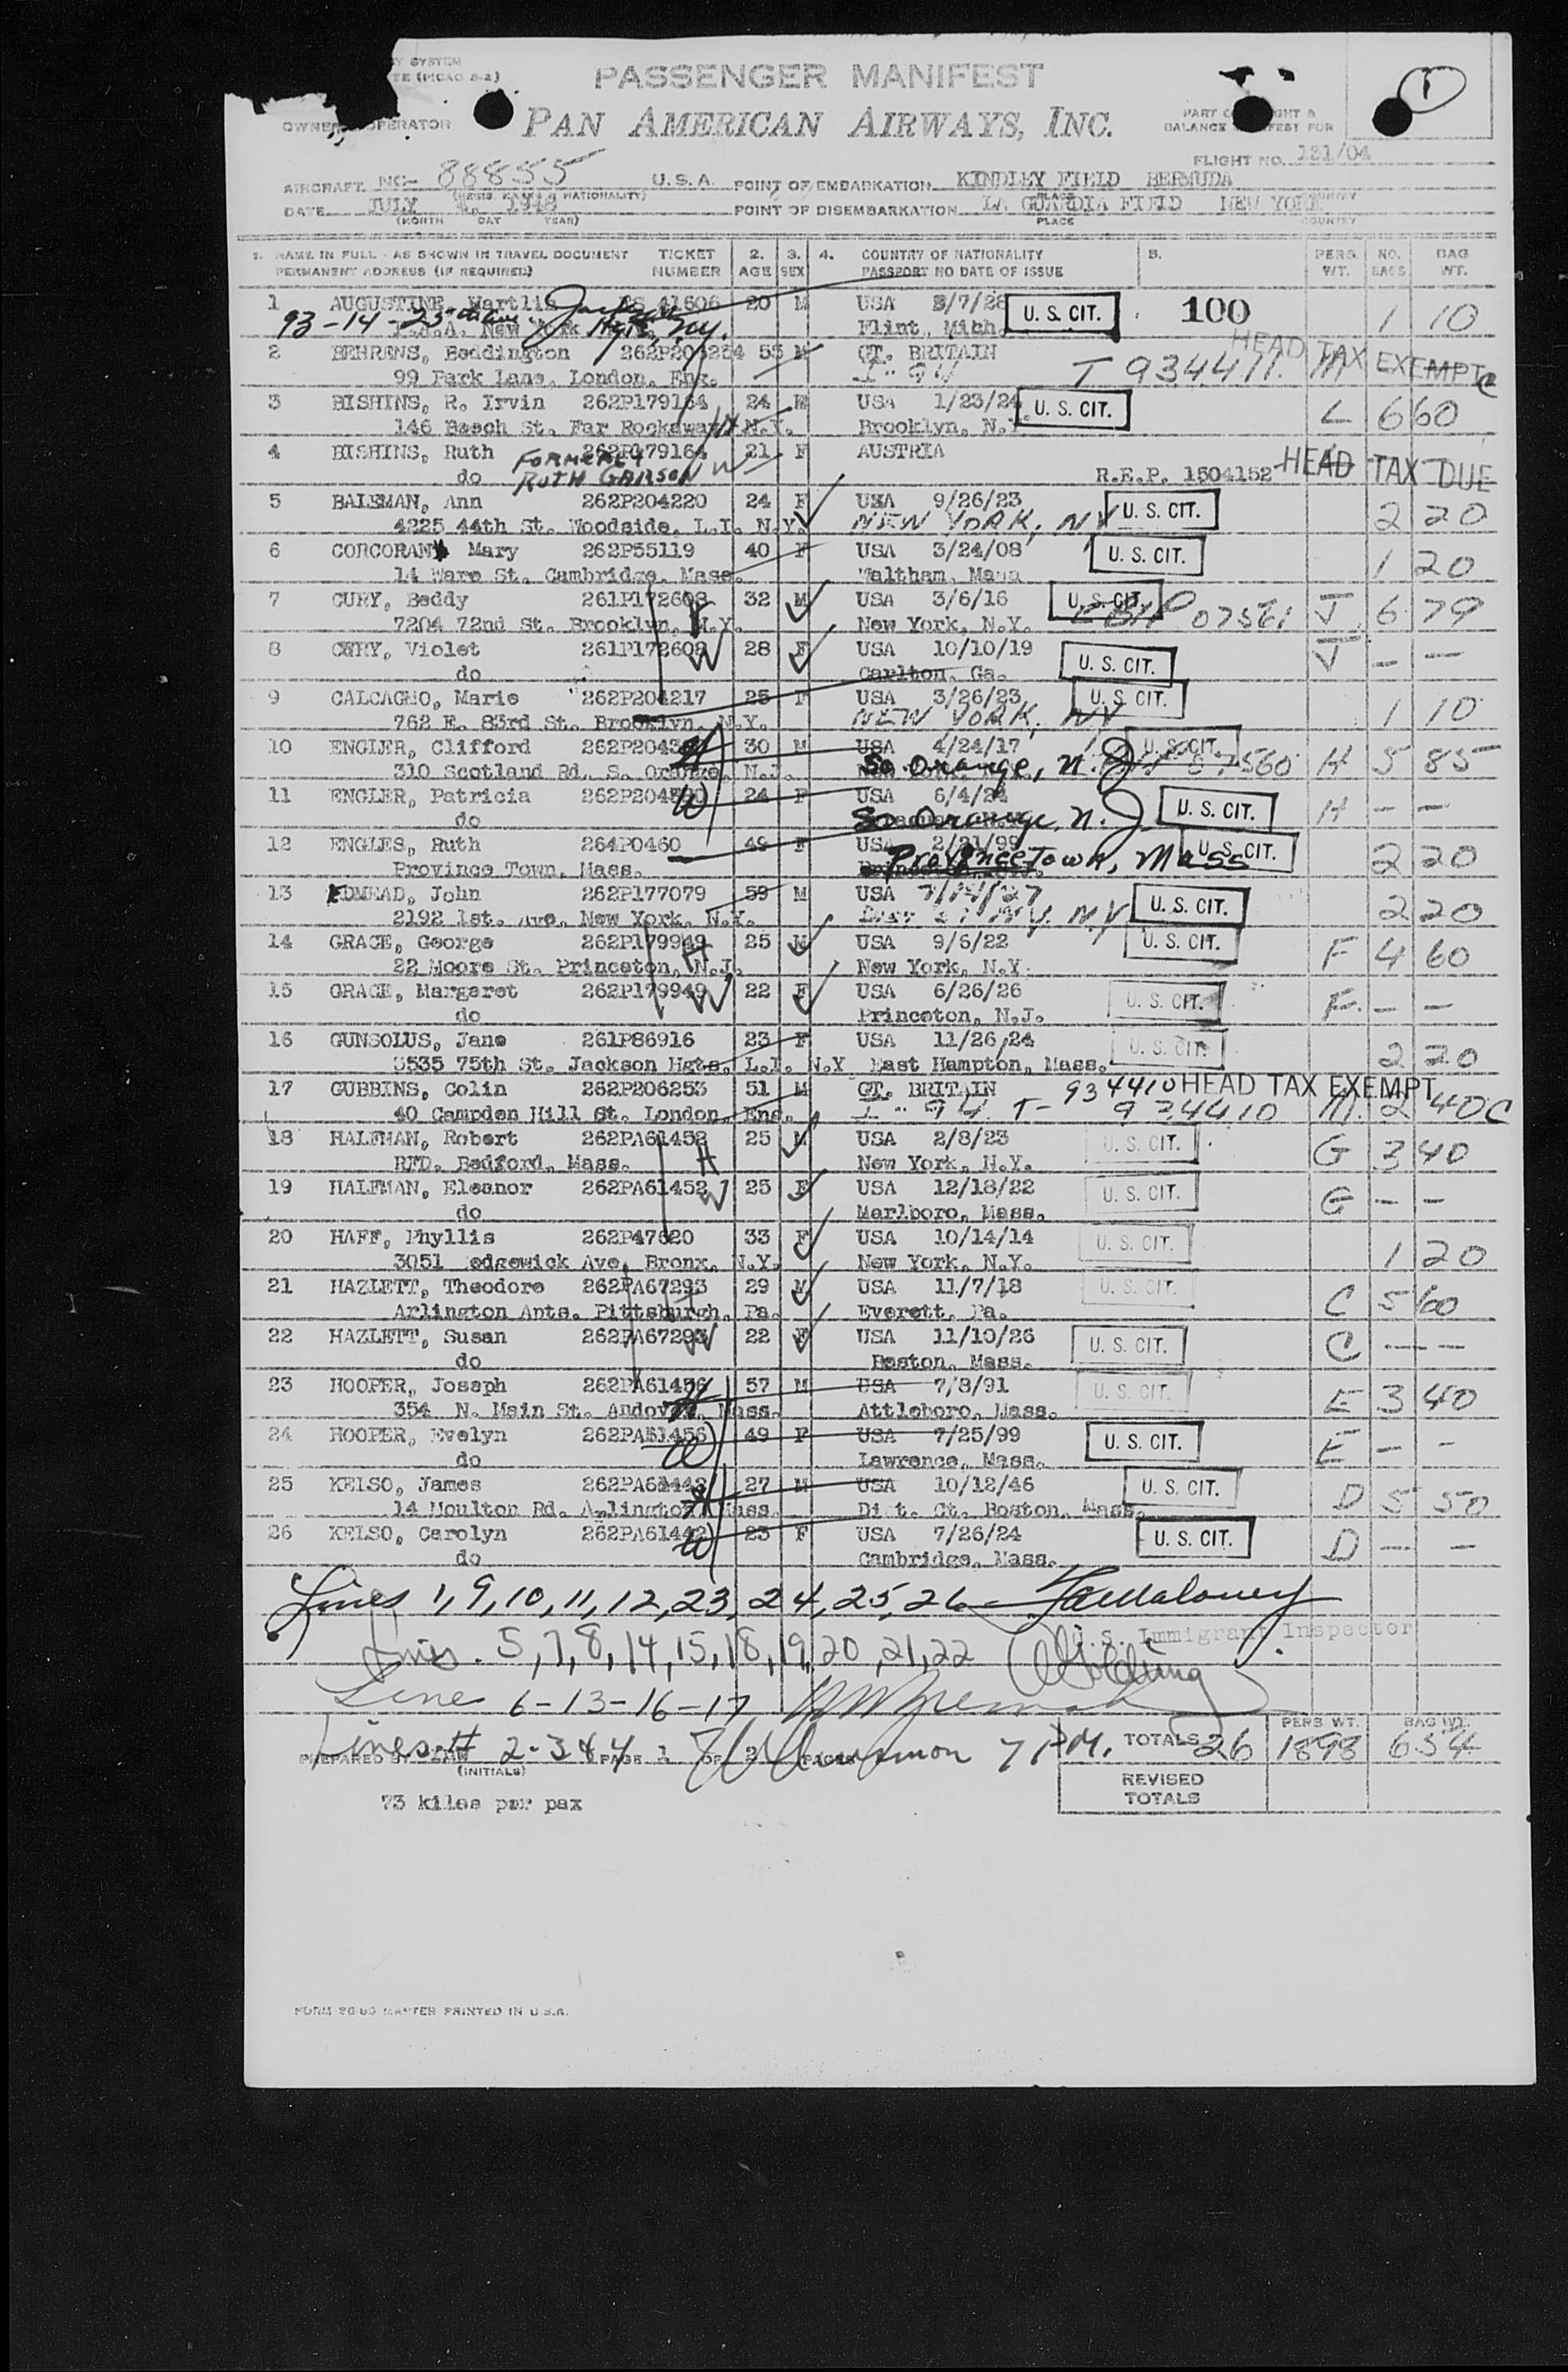 PASSENGER MANIFEST
OWNER OPERATOR PAN AMERICAN AIRWAYS, INC.
FLIGHT NO. 131/04
AIRCRAFT NC- 88855 U.S.A. POINT OF EMBARKATION KINDLEY FIELD BERMUDA
DATE JULY 4, 1948 POINT OF DISEMBARKATION LA GUARDIA FIELD NEW YORK
(MONTH DAY YEAR) PLACE COUNTRY
1. NAME IN FULL - AS SHOWN IN TRAVEL DOCUMENT TICKET 2. 3. 4. COUNTRY OF NATIONALITY 5. PERS. NO. BAG
PERMANENT ADDRESS (IF REQUIRED) NUMBER AGE SEX PASSPORT NO DATE OF ISSUE WT. BAGS WT.
1 AUGUSTINE, 41606 20 M USA 3/7/28 U. S. CIT. 100 1 10
93-14-23 Jackson Hgts, N.Y. Flint, Mich.
HEAD TAX EXEMPT
2 BEHRENS, Beddington 55 M GT. BRITAIN
99 Park Lane, London, Eng. I-94 T 934411 M
3 BISHINS, R. Irvin 262P179164 24 M USA 1/23/24 U. S. CIT. L 6 60
146 Beach St. Far Rockaway, N.Y. Brooklyn, N.Y.
4 BISHINS, Ruth 262P179164 21 F AUSTRIA
do FORMERLY RUTH GARSON W R.E.P. 1504152 HEAD TAX DUE
5 BALEMAN, Ann 262P204220 24 F USA 9/26/23 U. S. CIT. 2 20
4225 44th St. Woodside, L.I. N.Y. NEW YORK, NY
6 CORCORAN, Mary 262P55119 40 F USA 3/24/08 U. S. CIT. 1 20
14 Ware St. Cambridge, Mass. Waltham, Mass
7 CURY, Beddy 261P172608 32 M USA 3/6/16 U. S. CIT. 07561 J 6 79
7204 72nd St. Brooklyn, N.Y. New York, N.Y.
8 CURY, Violet 261P172608 W 28 F USA 10/10/19 U. S. CIT. J — —
do Carlton, Ga.
9 CALCAGNO, Marie 262P204217 25 F USA 3/26/23 U. S. CIT. 1 10
762 E. 83rd St. Brooklyn, N.Y. NEW YORK, NY
10 ENGLER, Clifford 30 M USA 4/24/17 U. S. CIT. H 5 85
310 Scotland Rd. S. Orange, N.J. So Orange, N.J. 07560
11 ENGLER, Patricia W 24 F USA 6/4/24 U. S. CIT. H — —
do So Orange, N.J.
12 ENGLES, Ruth 264P0460 49 F USA 2/21/99 U. S. CIT. 2 20
Province Town, Mass. Provincetown, Mass
13 EDMEAD, John 262P177079 59 M USA 7/14/27 U. S. CIT. 2 20
2192 1st. Ave, New York, N.Y. N.Y. N.Y
14 GRACE, George 262P179949 H 25 M USA 9/6/22 U. S. CIT. F 4 60
22 Moore St. Princeton, N.J. New York, N.Y.
15 GRACE, Margaret 262P179949 W 22 F USA 6/26/26 U. S. CIT. F — —
do Princeton, N.J.
16 GUNSOLUS, Jane 261P86916 23 F USA 11/26/24 U. S. CIT. 2 20
3535 75th St. Jackson Hgts, L.I. N.Y East Hampton, Mass.
17 GUBBINS, Colin 262P206253 51 M GT. BRITAIN 934410 HEAD TAX EXEMPT
40 Campden Hill St. London, Eng. I-94 T- 934410 M. 2 40 C
18 HALFMAN, Robert 262PA61452 H 25 M USA 2/8/23 U. S. CIT. G 3 40
RFD. Bedford, Mass. New York, N.Y.
19 HALFMAN, Eleanor 262PA61452 W 25 F USA 12/18/22 U. S. CIT. G — —
do Marlboro, Mass.
20 HAFF, Phyllis 262P47620 33 F USA 10/14/14 U. S. CIT. 1 20
3051 edgewick Ave, Bronx, N.Y. New York, N.Y.
21 HAZLETT, Theodore 262PA67293 29 M USA 11/7/18 U. S. CIT. C 5 60
Arlington Apts. Pittsburgh, Pa. Everett, Pa.
22 HAZLETT, Susan 262PA67293 W 22 F USA 11/10/26 U. S. CIT. C — —
do Boston, Mass.
23 HOOPER, Joseph 262PA61456 H 57 M USA 7/8/91 U. S. CIT. E 3 40
354 N. Main St. Andover, Mass. Attleboro, Mass.
24 HOOPER, Evelyn 262PA61456 W 49 F USA 7/25/99 U. S. CIT. E — —
do Lawrence, Mass.
25 KELSO, James 262PA61442 H 27 M USA 10/12/46 U. S. CIT. D 5 50
14 Moulton Rd. Arlington Mass. Dist. Ct. Boston, Mass.
26 KELSO, Carolyn 262PA61442 W 23 F USA 7/26/24 U. S. CIT. D — —
do Cambridge, Mass.
Lines 1, 9, 10, 11, 12, 23, 24, 25, 26
U.S. Immigrant Inspector
Lines. 5, 7, 8, 14, 15, 18, 19, 20, 21, 22
Line 6-13-16-17
Lines # 2-3 & 4 7 PM.
PREPARED BY (INITIALS) PAGE 1 OF 2 PAGES
TOTALS 26 PERS WT. 1898 BAG WT. 654
REVISED TOTALS
73 kilos per pax
FORM PRINTED IN U.S.A.